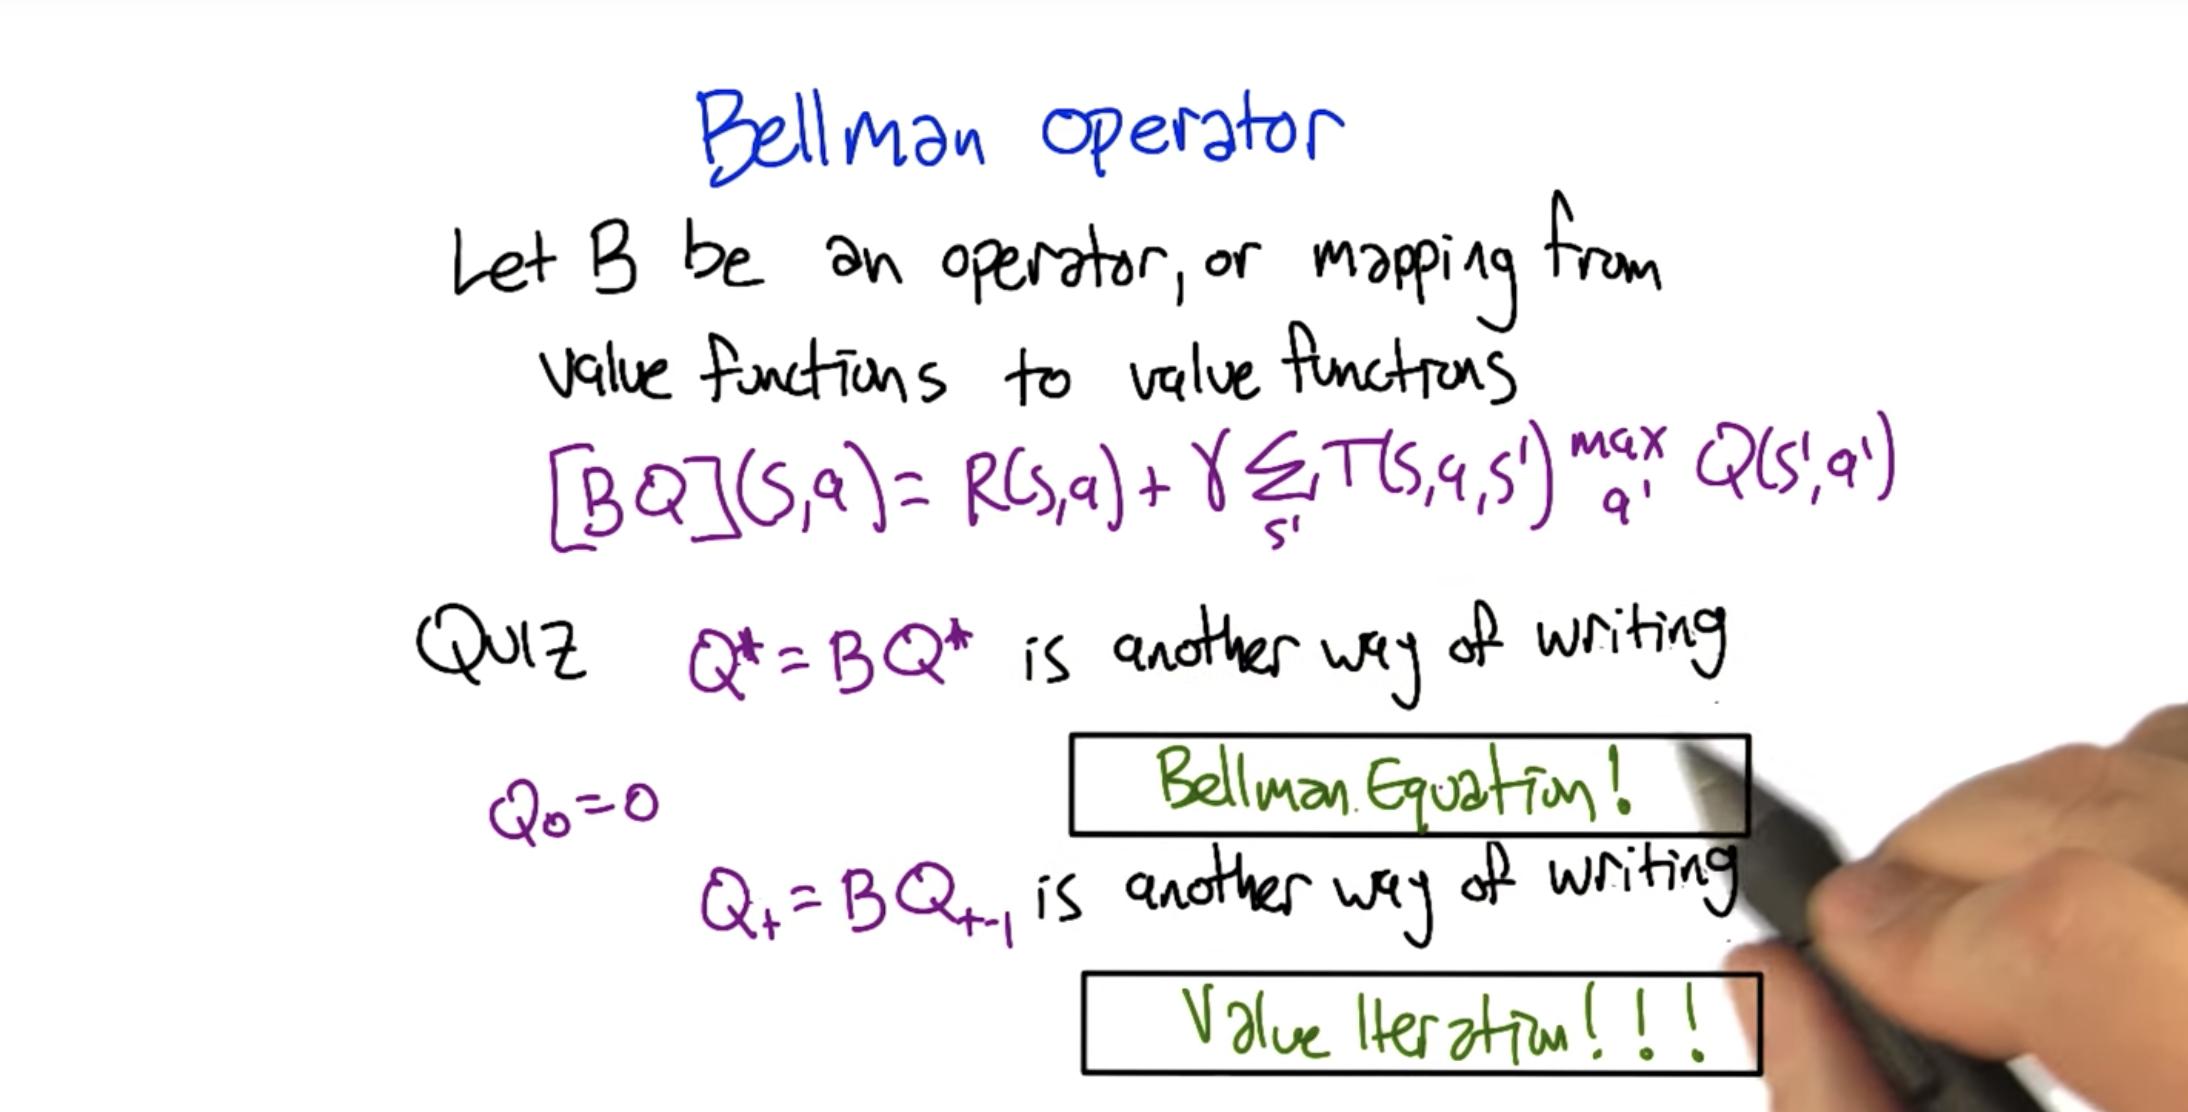 Bellman operator
Let B be an operator, or mapping from
value functions to value functions
[BQ](s,a) = R(s,a) + γ Σ_s' T(s,a,s') max_a' Q(s',a')
Quiz Q* = BQ* is another way of writing
Bellman Equation!
Q₀ = 0
Qₜ = BQₜ₋₁ is another way of writing
Value Iteration!!!